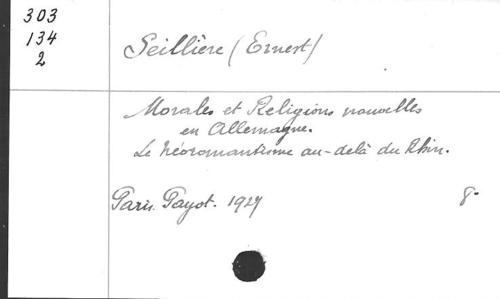 303
134
2
Seillière (Ernest)
Morales et Religions nouvelles
en Allemagne.
Le Néoromantisme au-delà du Rhin.
Paris. Payot. 1927 8°